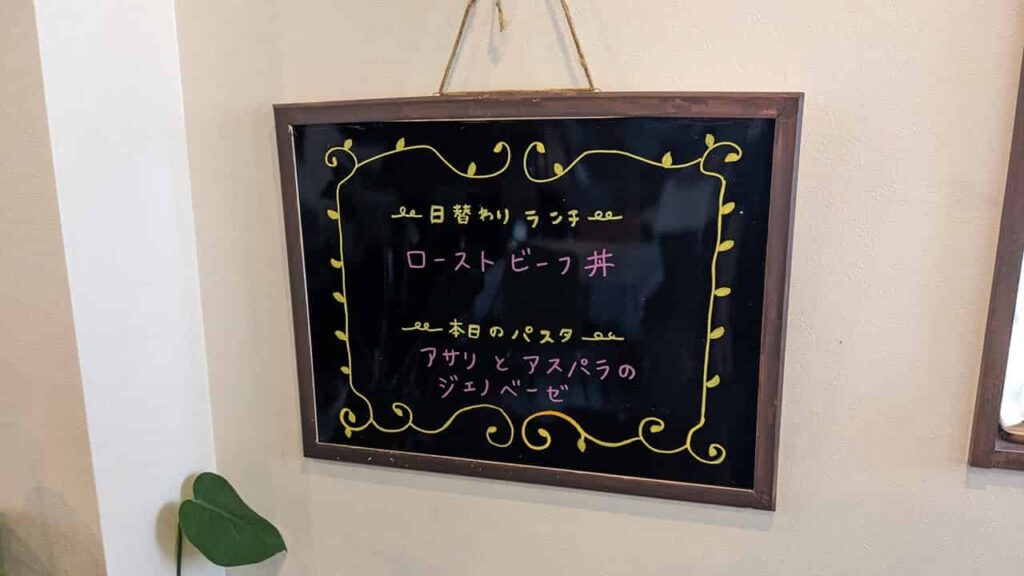 日替わり ランチ
ローストビーフ丼
本日のパスタ
アサリとアスパラの
ジェノベーゼ